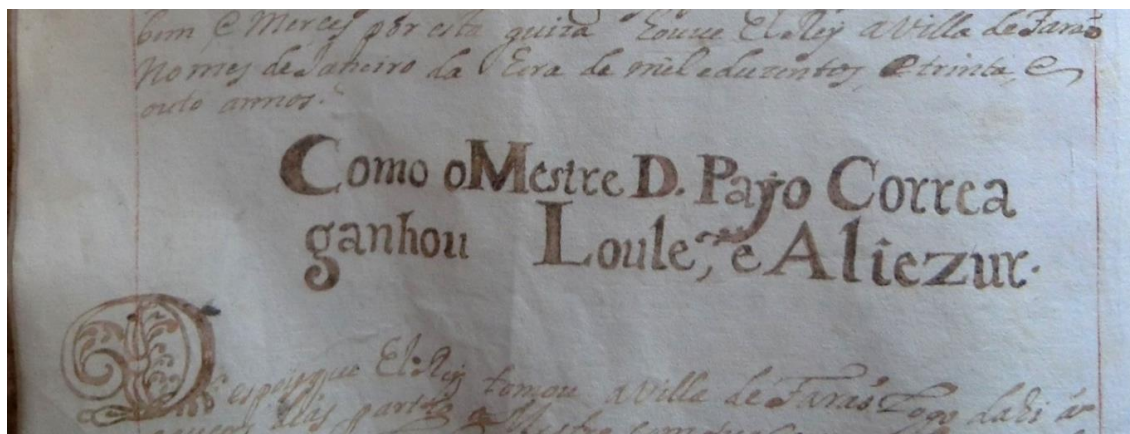 bem e Merces por esta guiza houue El Rey a Villa de Faraõ
No mes de Janeiro da Era de mil e duzentos e trinta e
outo annos.
Como o Mestre D. Payo Correa
ganhou Loule, e Aliezur.
Despois que El Rey tomou a Villa de Faraõ Logo dahi a
partio o Mestre